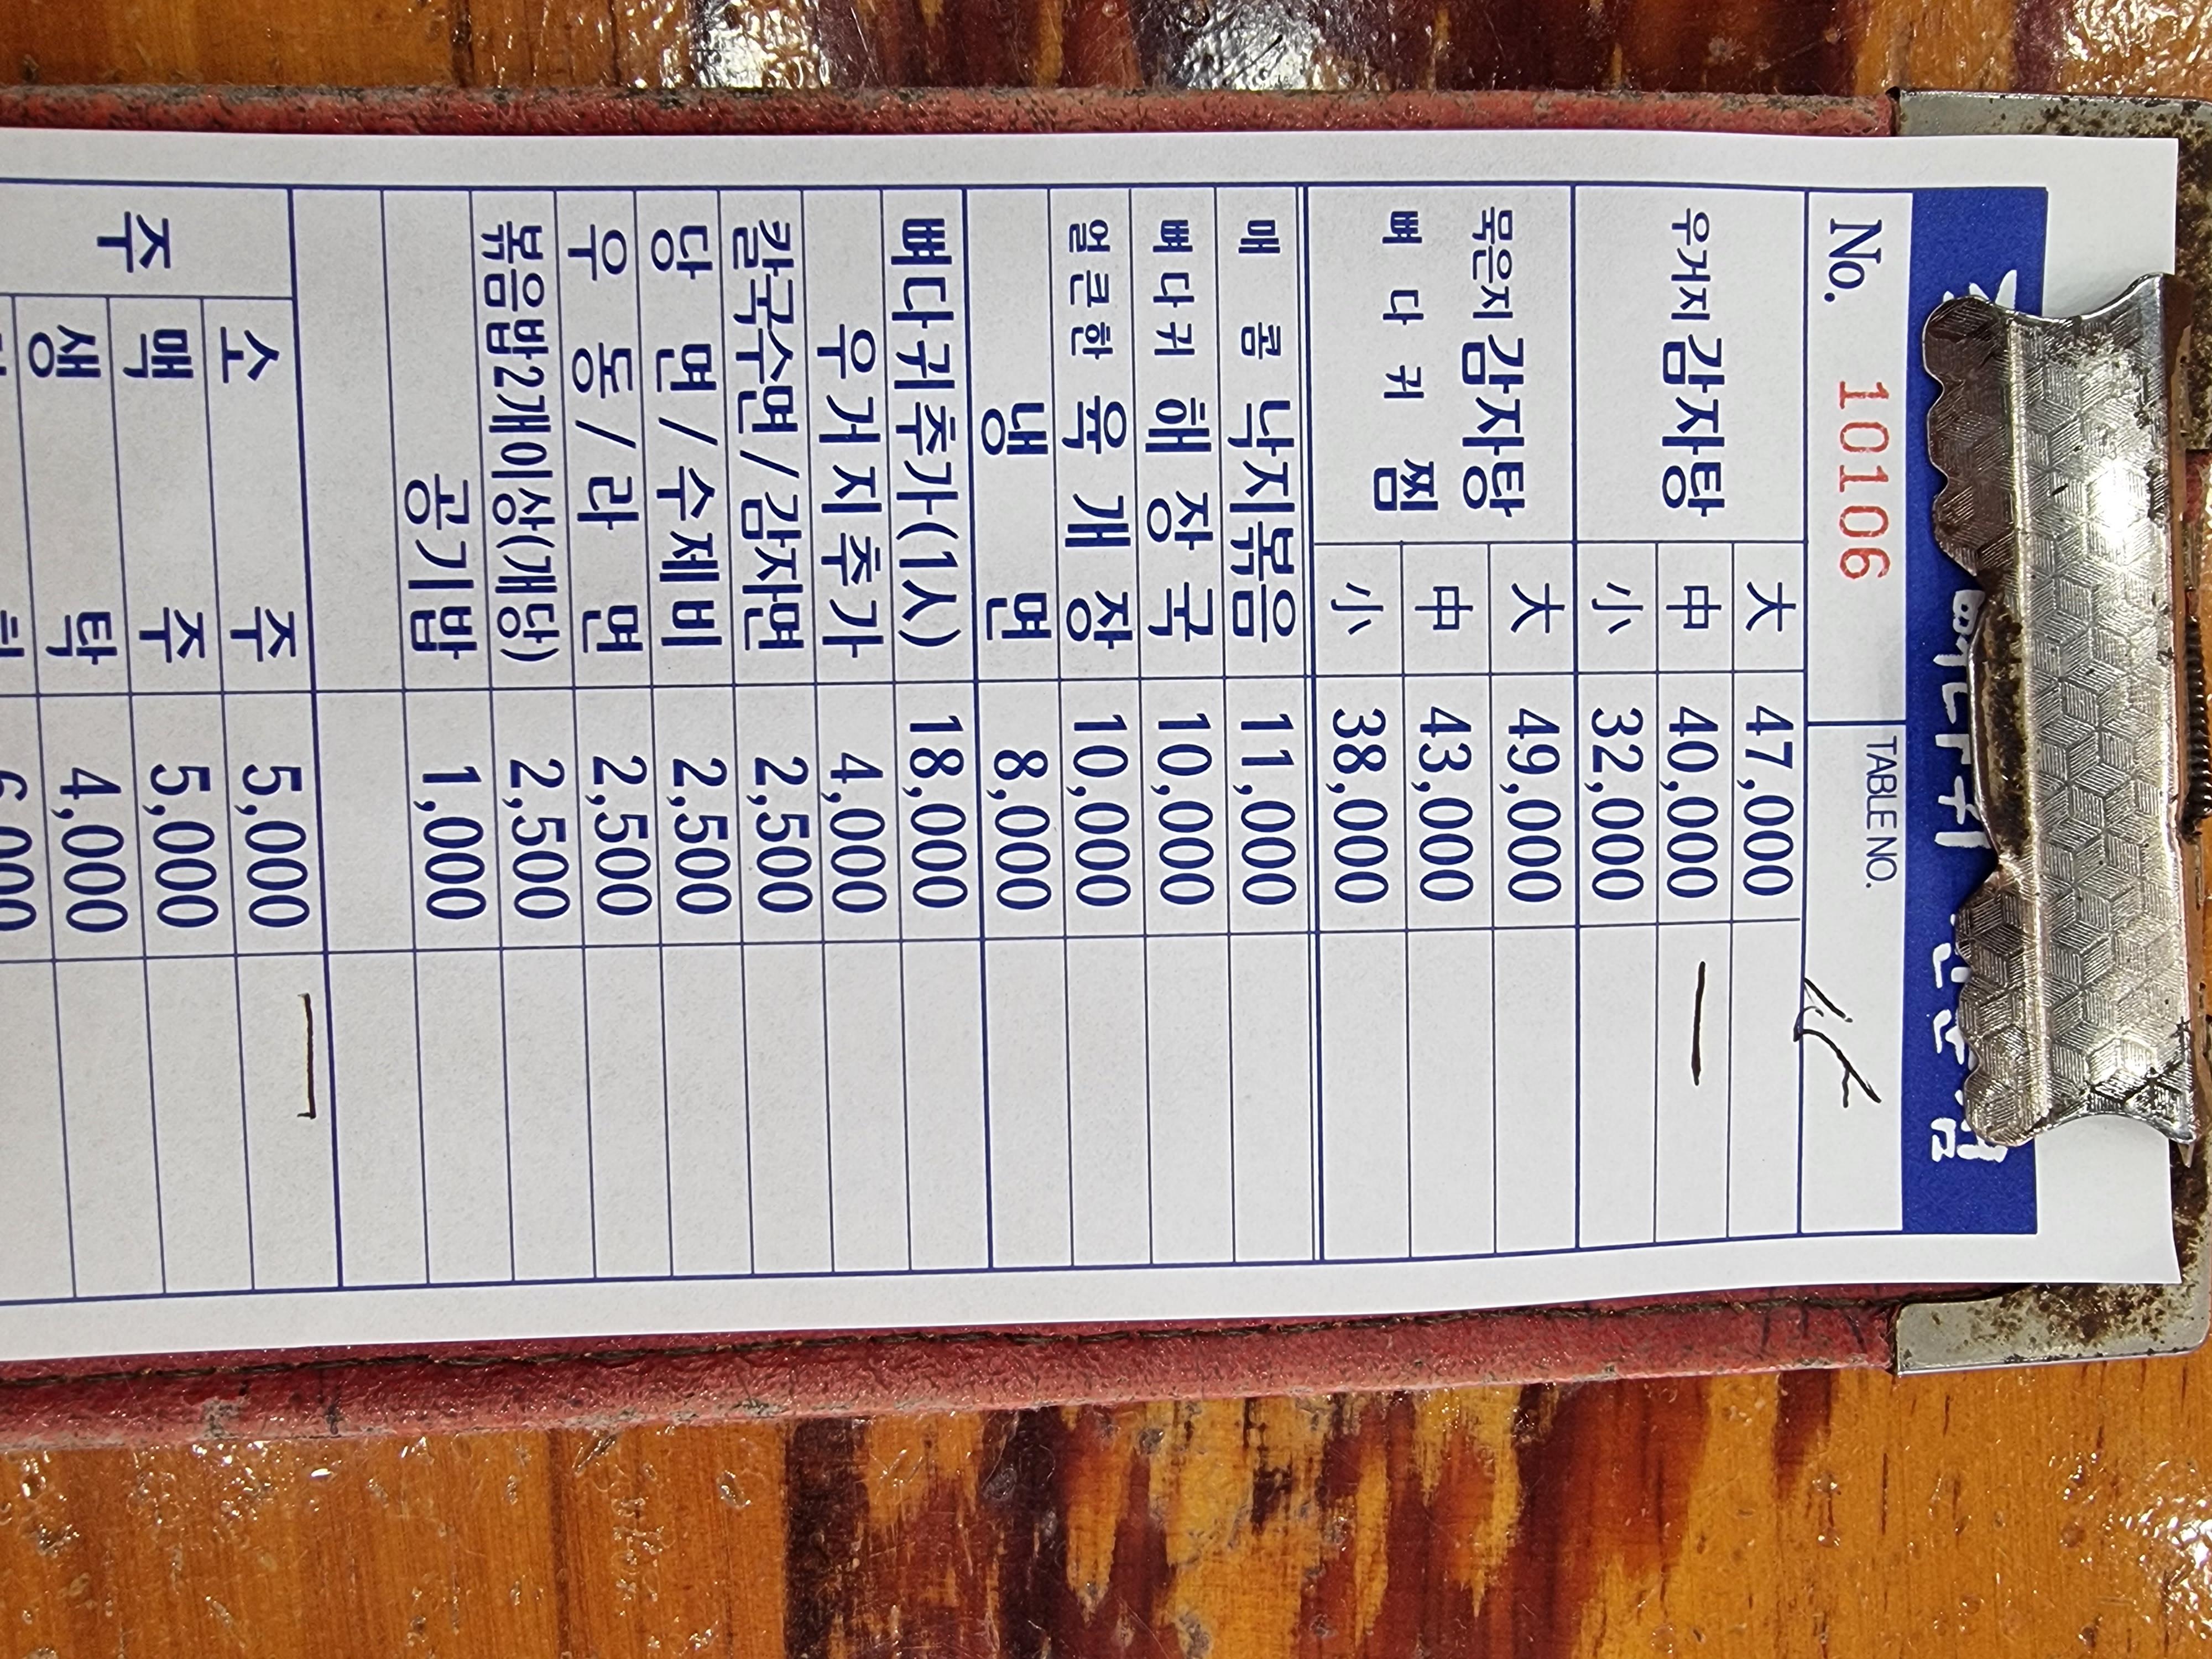 뼈다귀 전문점
No. 10106 TABLE NO.
우거지감자탕 大 47,000
中 40,000 一
小 32,000
묵은지감자탕 大 49,000
뼈다귀찜 中 43,000
小 38,000
매콤낙지볶음 11,000
뼈다귀해장국 10,000
얼큰한육개장 10,000
냉면 8,000
뼈다귀추가(1人) 18,000
우거지추가 4,000
칼국수면/감자면 2,500
당면/수제비 2,500
우동/라면 2,500
볶음밥2개이상(개당) 2,500
공기밥 1,000
주 소주 5,000 一
맥주 5,000
생탁 4,000
6,000